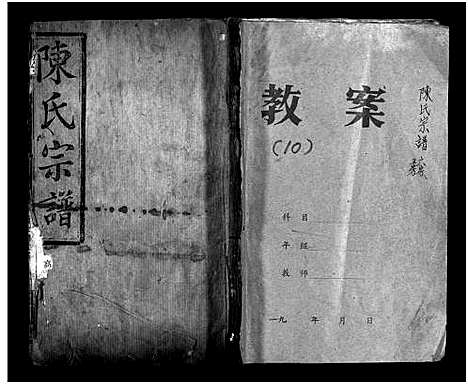 陳氏宗譜
教案
(10)
陳氏宗譜
科目
年級
教师
一九 年 月 日